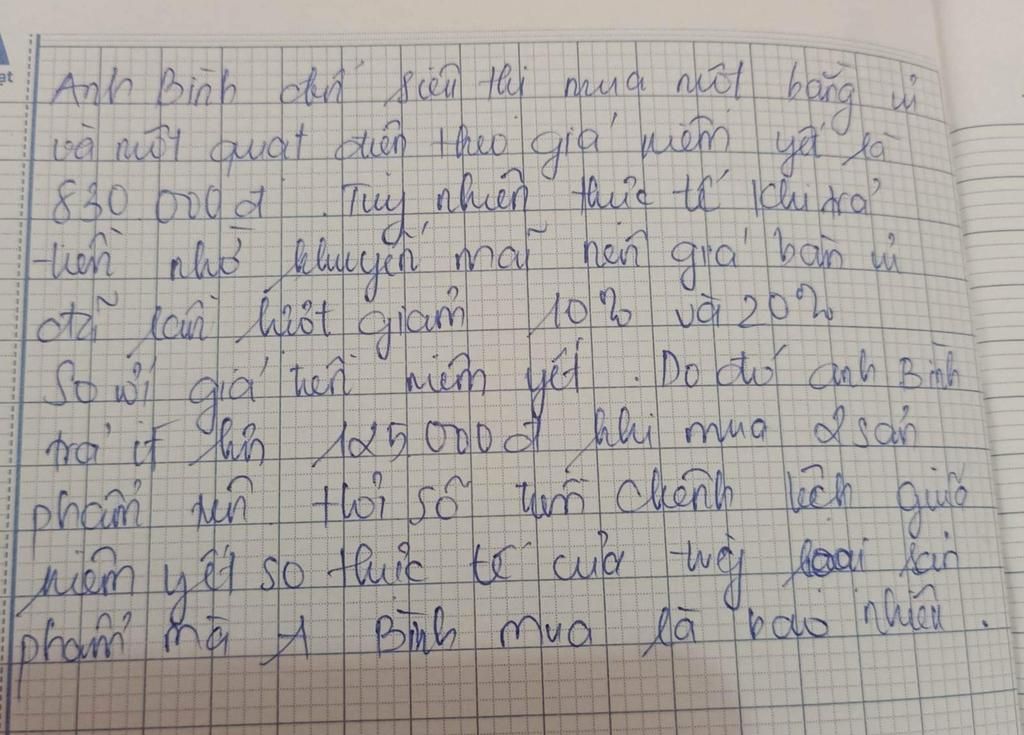 ệt
Anh Bình đến siêu thị mua một bàng ủi
và một quạt điện theo giá niêm yết là
830 000đ. Tuy nhiên thực tế khi trả
tiền nhờ khuyến mãi nên giá bàn ủi
đã lần lượt giảm 10% và 20%
So với giá tiền niêm yết. Do đó anh Bình
trả ít hơn 125 000đ khi mua 2 sản
phẩm trên thỏi số tiền chênh lệch giữa
niêm yết so thực tế của từng loại sản
phẩm mà A Bình mua là bao nhiêu.